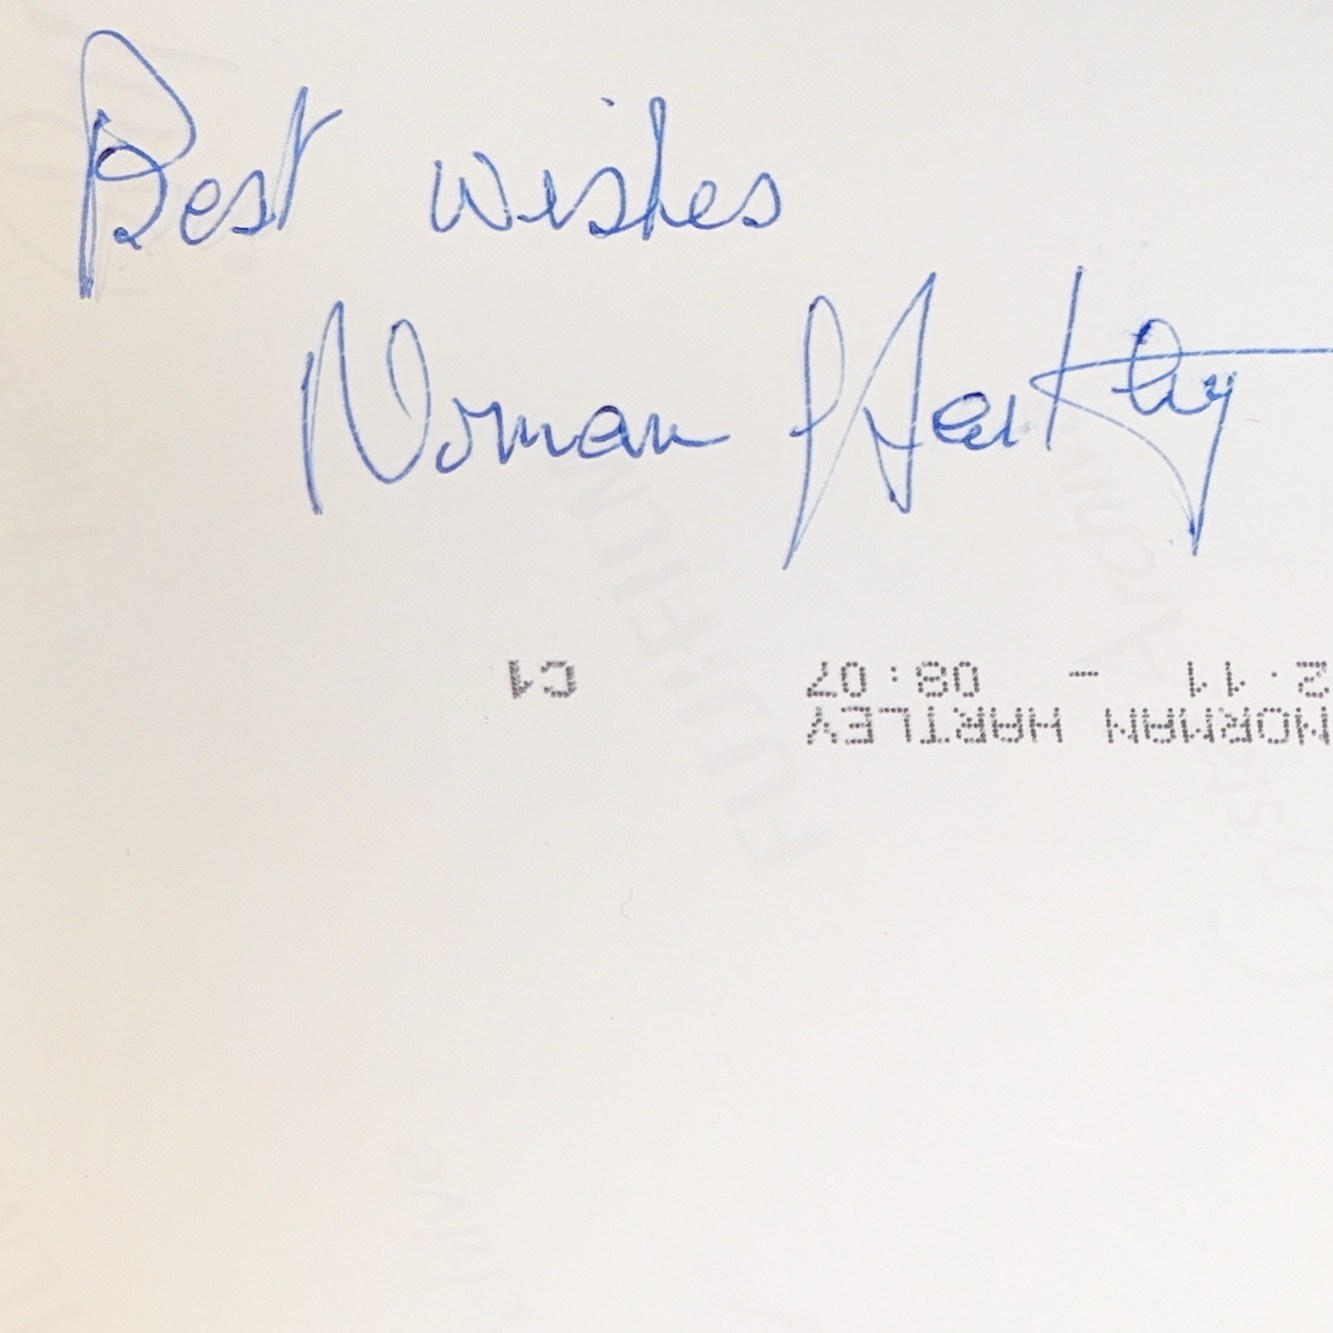 Best wishes
Norman Hartley
NORMAN HARTLEY
2.11 - 08:07 C1
FUJIFILM